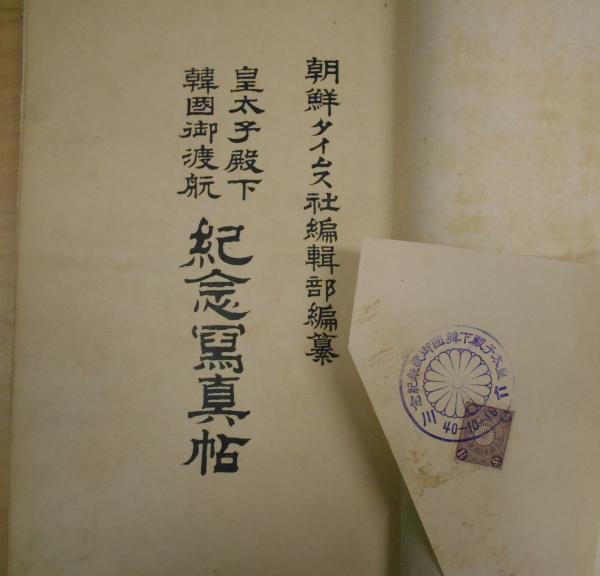 朝鮮タイムス社編輯部編纂
皇太子殿下
韓國御渡航
紀念寫眞帖
皇太子殿下韓國御渡航紀念
仁川
40-10-16